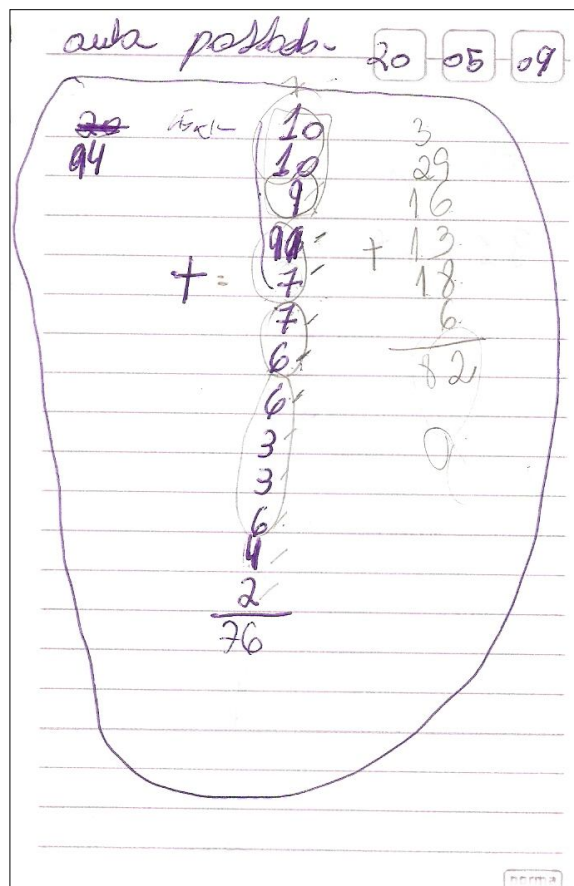 aula passada 20 05 09
20
94
10
10
9
7
+ =
7
6
6
3
3
6
4
2
76
3
29
16
+ 13
18
6
82
0
norma